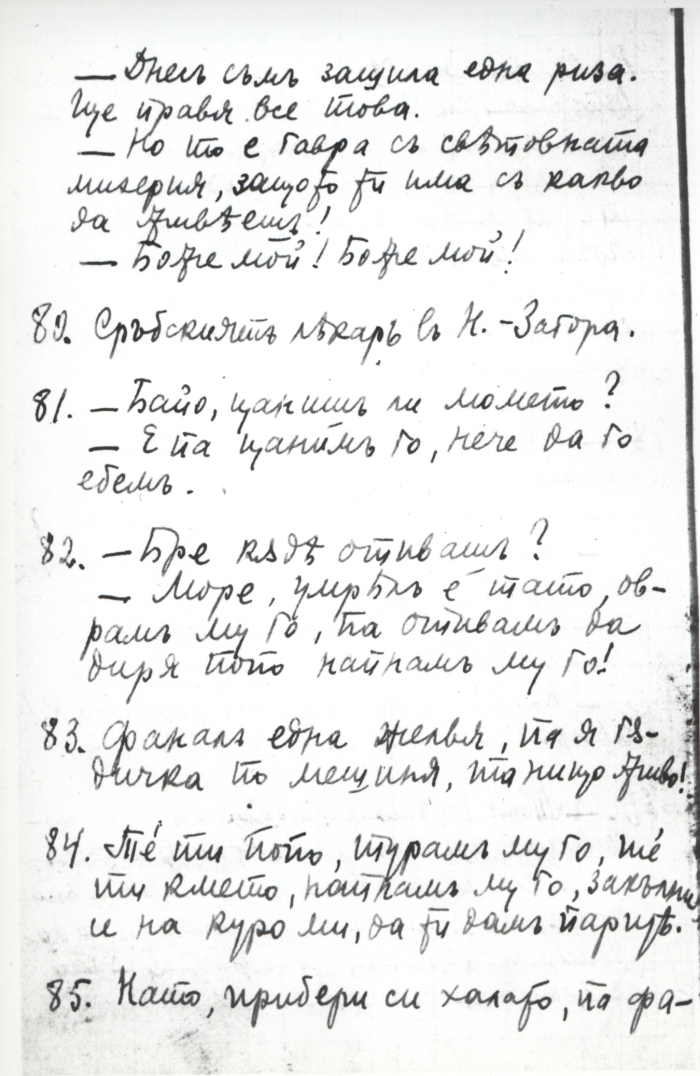 — Днесъ съмъ защила една риза.
Ще правя все това.
— Но то е гавра съ свѣтовната
мизерия, защото ти има съ какво
да живѣешъ!
— Боже мой! Боже мой!
80. Сръбскиятъ лѣкарь въ Н.-Загора.
81. — Байо, цанишъ ли момето?
— Е па цанимъ го, нече да го
ебемъ.
82. — Бре кѫдѣ отивашъ?
— Море, умрѣлъ е тато, ов-
рамъ му го, па отивамъ да
диря попо натнамъ му го!
83. Фаналъ една желвя, па я гѫ-
дичка по мешиня, та нищо живо!
84. Те́ ти попо, турамъ му го, те́
ти кмето, натнамъ му го,
и на куро ми, да ти дамъ парицѣ.
85. Нато, прибери си халато, па фа-